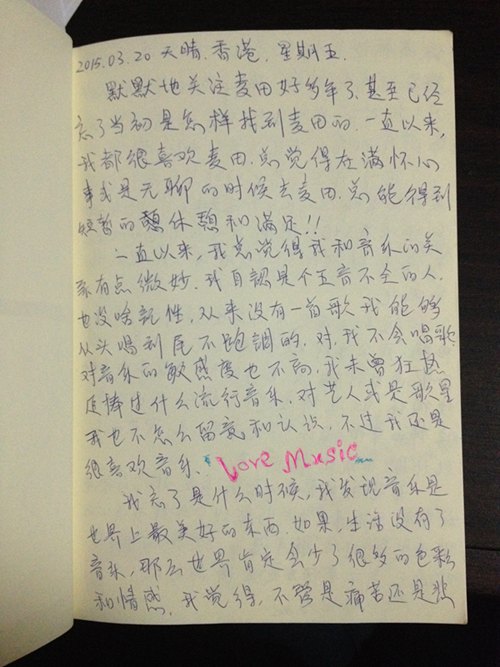 2015.03.20 天晴.香港.星期五.
默默地关注麦田好多年了.甚至已经
忘了当初是怎样找到麦田的.一直以来,
我都很喜欢麦田.总觉得在满怀心
事或是无聊的时候去麦田.总能得到
短暂的憩休憩和满足!!
一直以来,我总觉得我和音乐的关
系有点微妙.我自認是个五音不全的人,
也没啥記性,从来没有一首歌我能够
从头唱到尾不跑調的.对,我不会唱歌
对音乐的敏感度也不高,我未曾狂热
追捧过什么流行音乐.对艺人或是歌星
我也不怎么留意和认识,不过我还是
很喜欢音乐. Love Music
我忘了是什么时候,我发现音乐是
世界上最美好的东西.如果,生活没有了
音乐,那么世界肯定会少了很多的色彩
和情感.我觉得,不管是痛苦还是悲